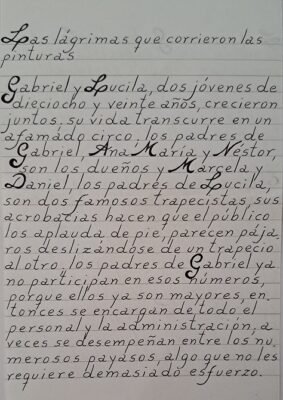 Las lágrimas que corrieron las
pinturas
Gabriel y Lucila, dos jóvenes de
dieciocho y veinte años, crecieron
juntos. su vida transcurre en un
afamado circo. los padres de
Gabriel, Ana María y Néstor,
son los dueños y Marcela y
Daniel, los padres de Lucila,
son dos famosos trapecistas, sus
acrobatias hacen que el público
los aplauda de pie, parecen pája_
ros deslizándose de un trapecio
al otro. los padres de Gabriel ya
no participan en esos números,
porque ellos ya son mayores, en_
tonces se encargan de todo el
personal y la administración, a
veces se desempeñan entre los nu_
merosos payasos, algo que no les
requiere demasiado esfuerzo.